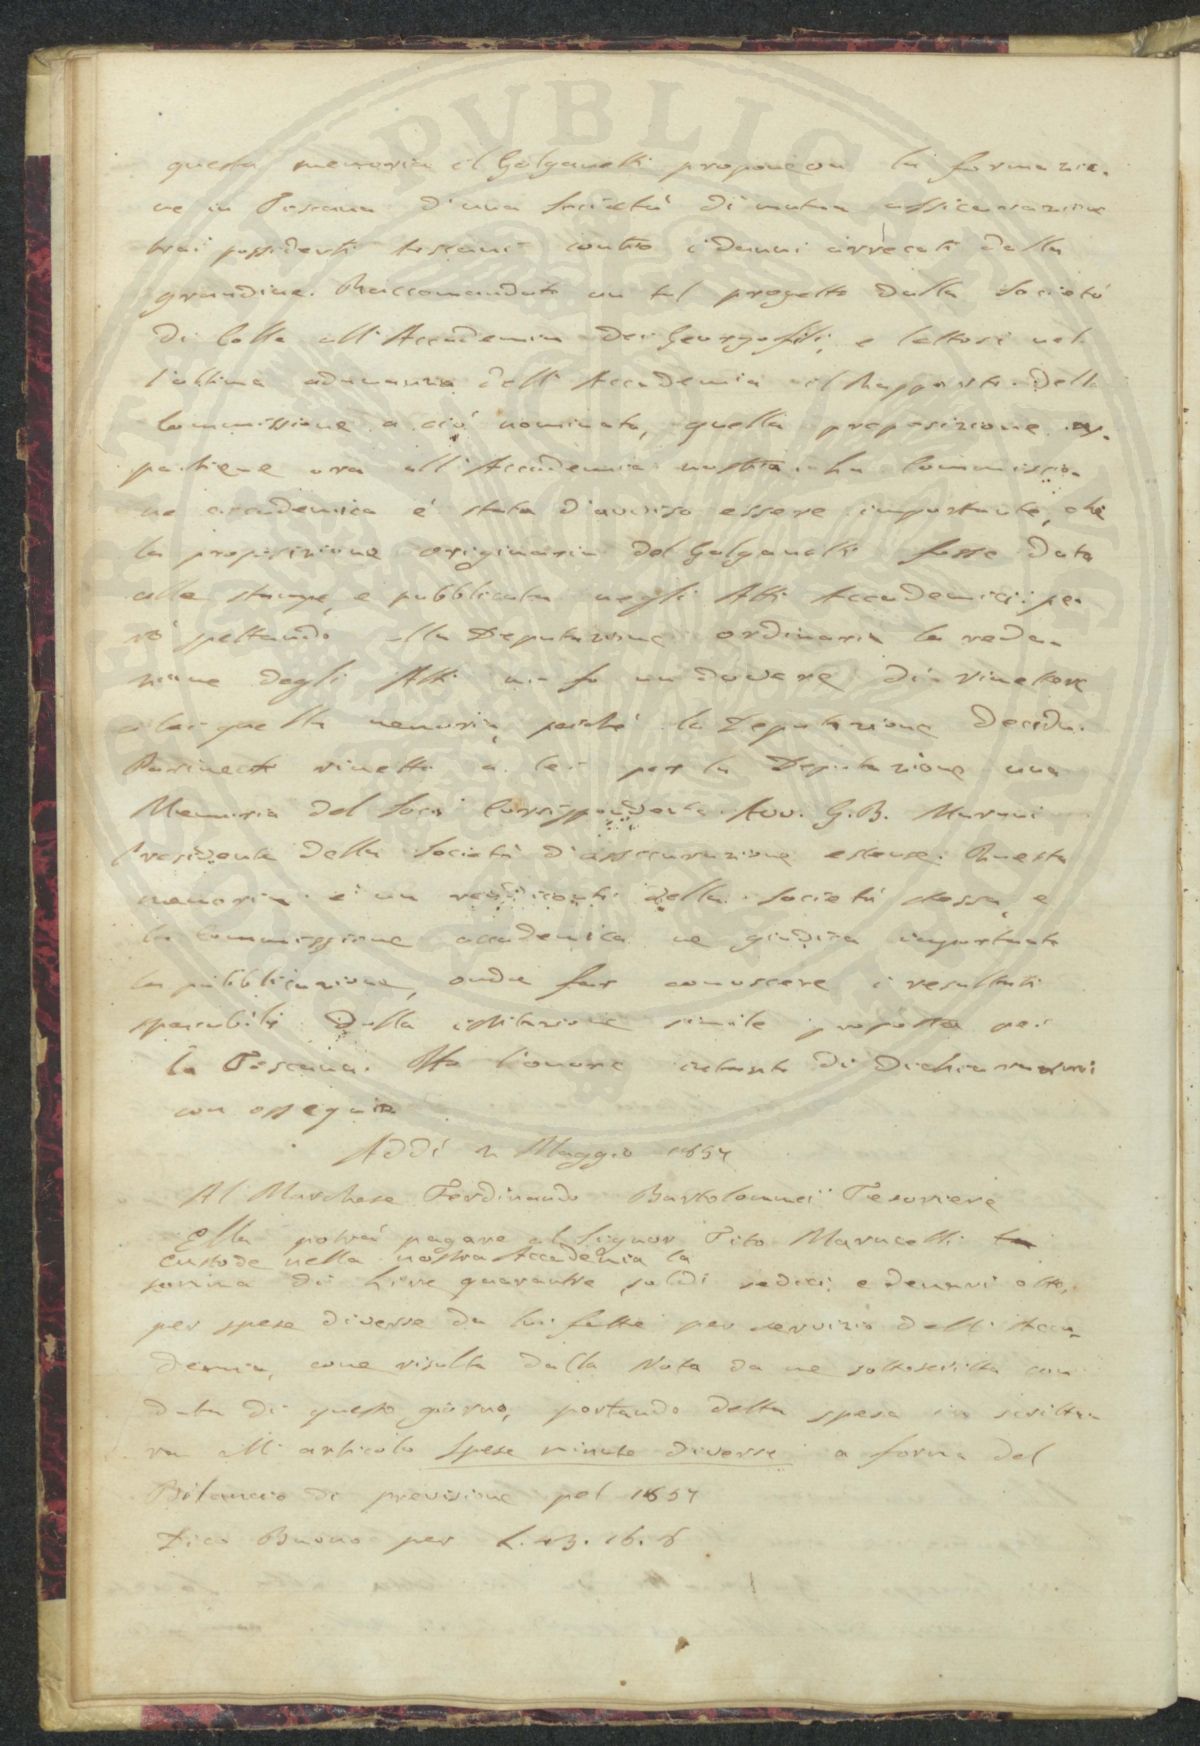 questa memoria il Galganetti proponeva la formazio-
ne in Toscana d'una Società di mutua assicurazione
trai possidenti toscani contro i danni arrecati dalla
grandine. Raccomandato un tal progetto dalla Società
di Colle all'Accademia dei Georgofili, e lettosi nel-
l'ultima adunanza dell'Accademia il Rapporto della
Commissione a ciò nominata, quella proposizione ap-
partiene ora all'Accademia nostra. La Commissio-
ne accademica è stata d'avviso essere importante, che
la proposizione originaria del Galganetti fosse data
alle stampe, e pubblicata negli Atti Accademici: pe-
rò spettando alla Deputazione ordinaria la reda-
zione degli Atti mi fo un dovere di rimettere
a lei quella memoria, perchè la Deputazione decida.
Parimente rimetto a lei per la Deputazione una
Memoria del Socio Corrispondente Avv. G.B.
Presidente della Società d'assicurazione estense. Questa
memoria è un rendiconto della Società stessa, e
la Commissione accademica ne giudica importante
la pubblicazione, onde far conoscere i resultati
sperabili dalla istituzione simile proposta per
la Toscana. Ho l'onore intanto di dichiararmi
con ossequio
Addì 2 Maggio 1857
Al Marchese Ferdinando Bartolommei Tesoriere
Ella potrà pagare al Signor Tito Marucelli la
custode nella nostra Accademia la
somma di Lire quarantre, soldi sedici, e denari otto,
per spese diverse da lui fatte per servizio dell'Acca-
demia, come risulta dalla Nota da me sottoscritta con
data di questo giorno, portando detta spesa in scrittu-
ra all'articolo Spese minute diverse a forma del
Bilancio di previsione pel 1857
Dico Buono per L. 43. 16. 8